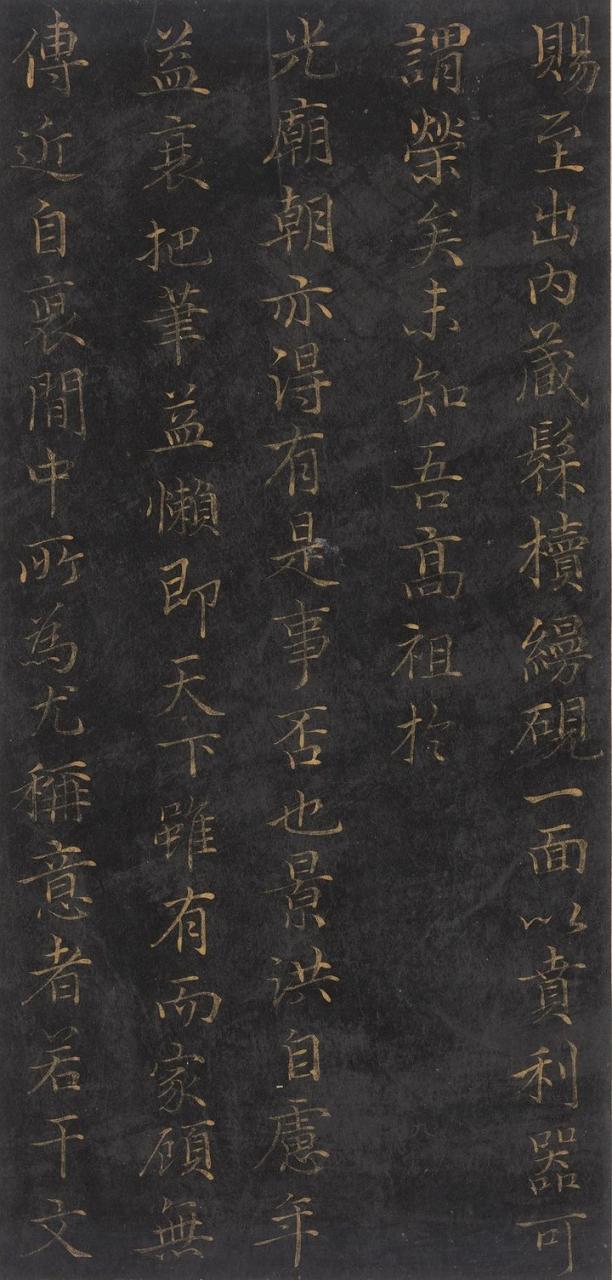 賜至出內藏髹櫝縵硯一面以賁利器可
謂榮矣未知吾高祖於
光廟朝亦得有是事否也景洪自慮年
益衰把筆益懶即天下雖有而家顧無
傳近自裒閒中所為尤稱意者若干文